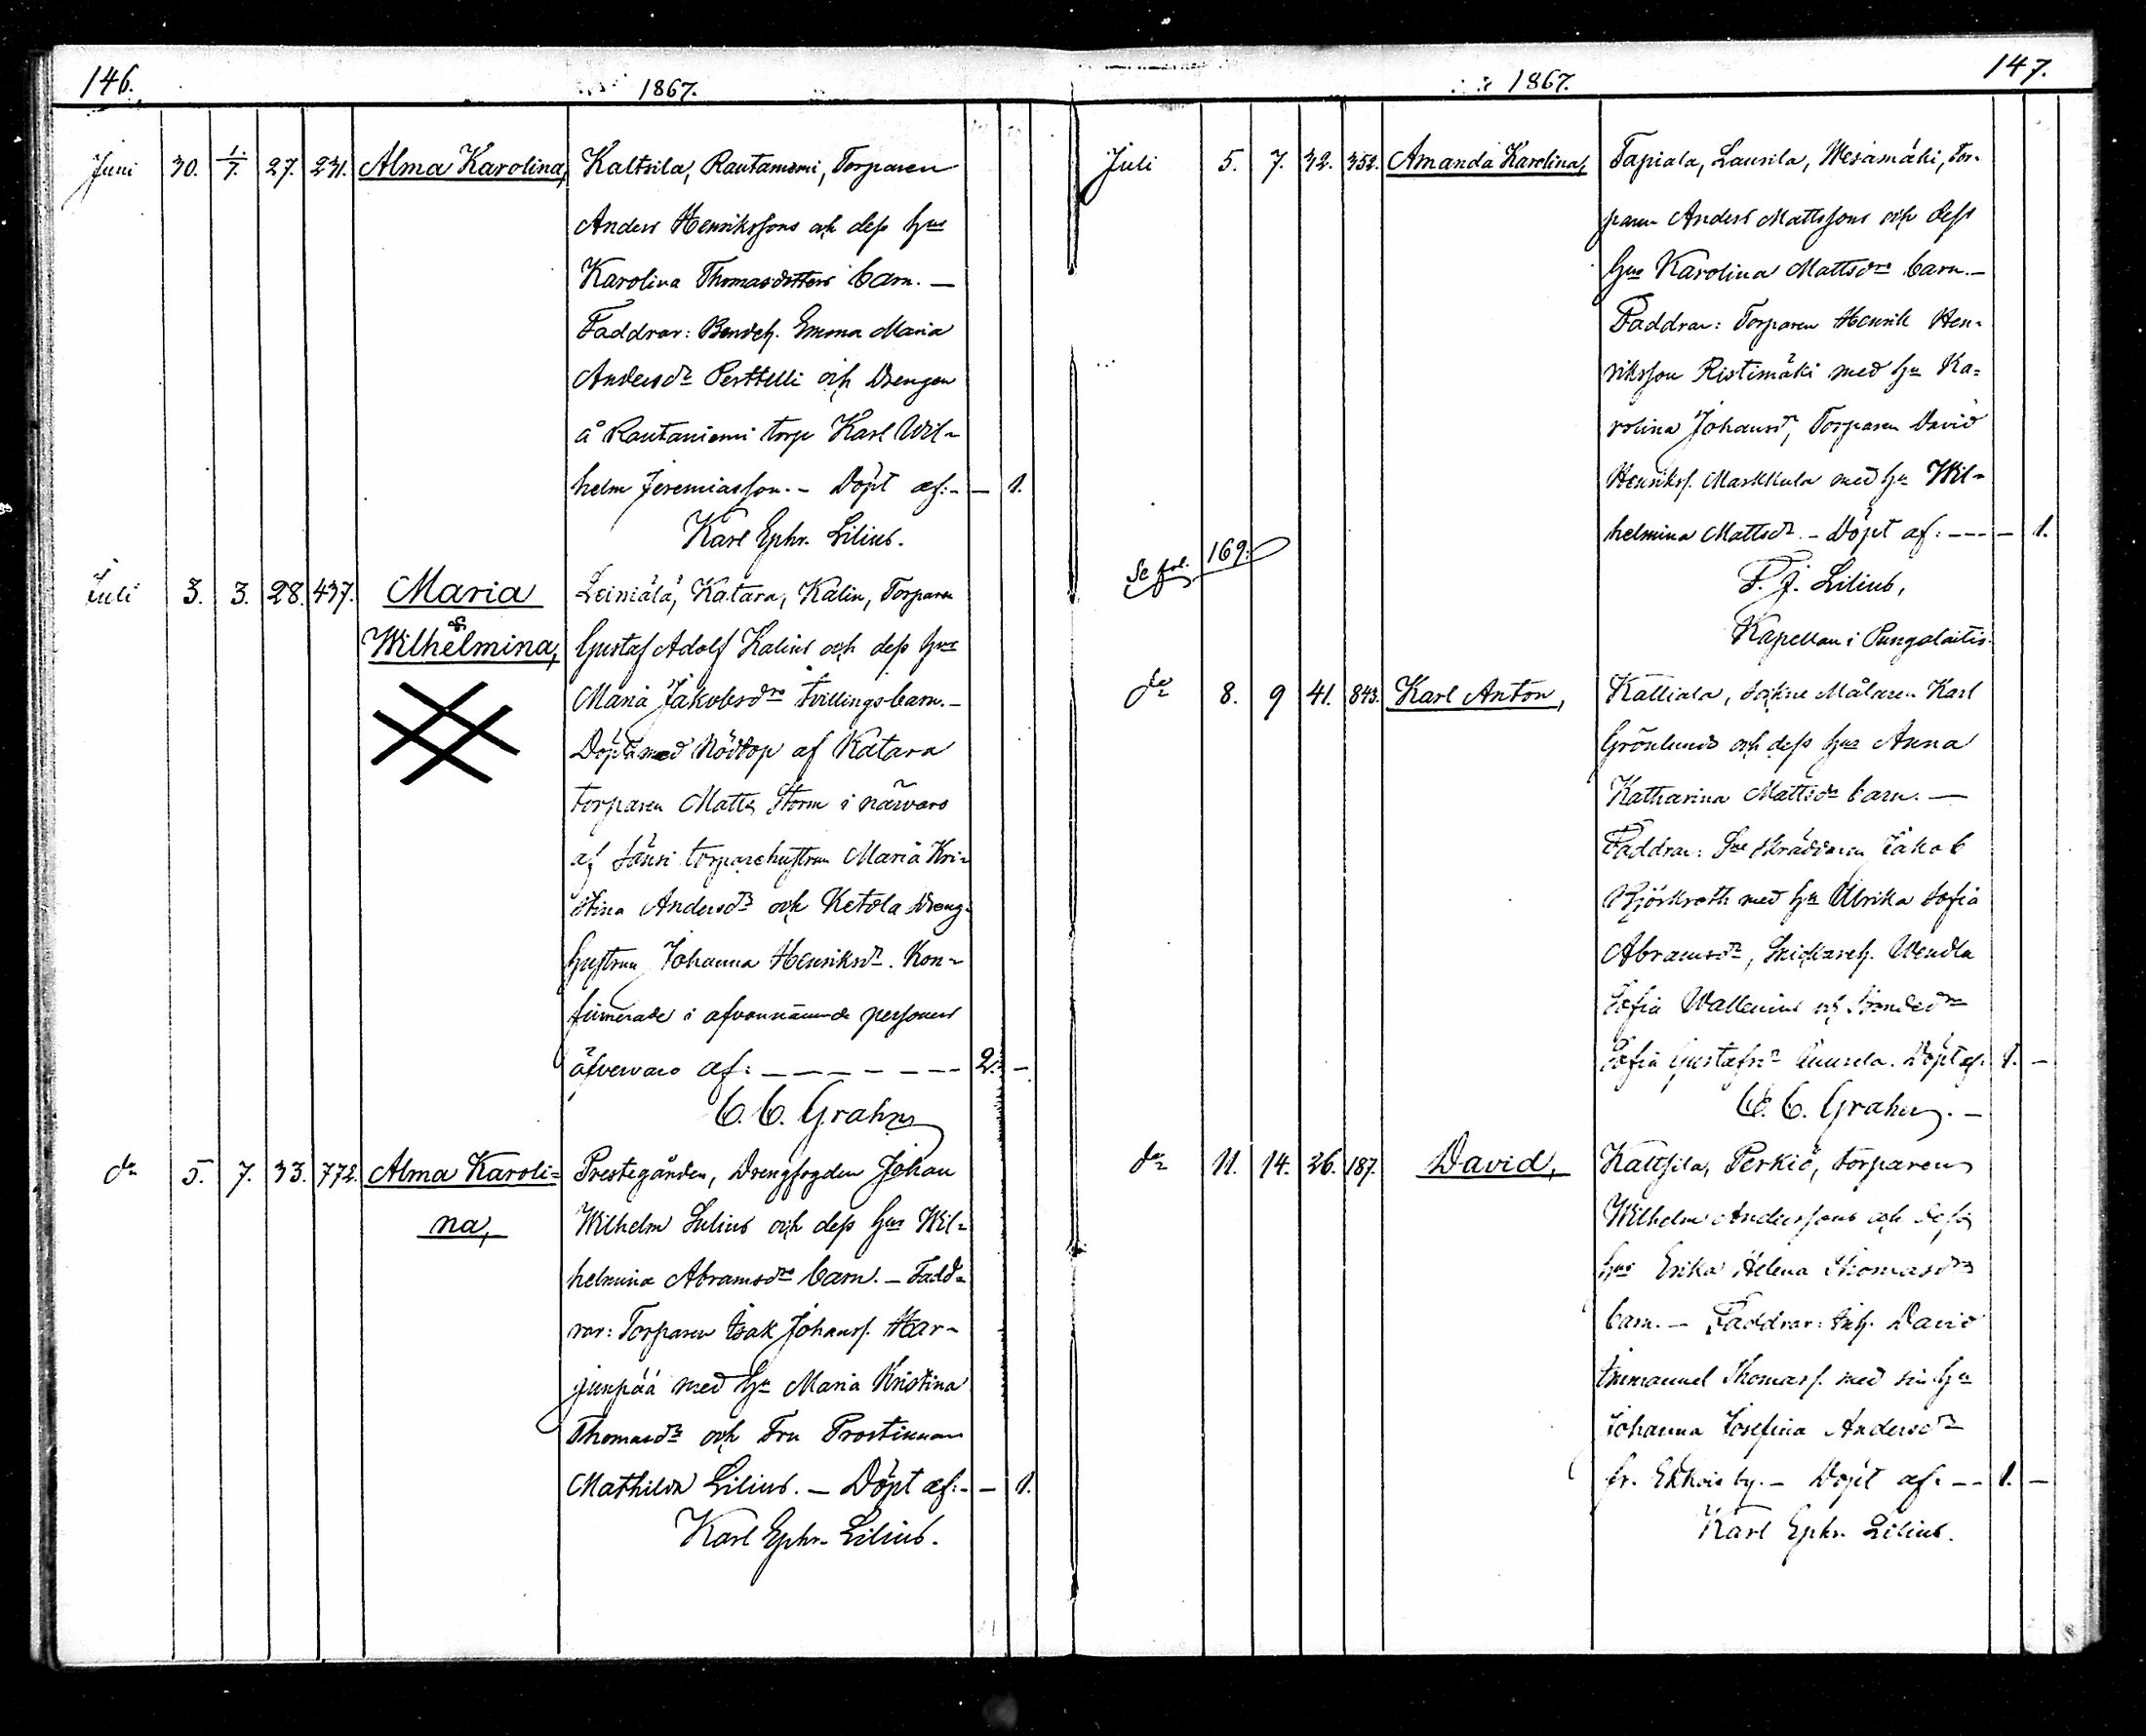 146.
1867.
Juni 30. 1./7. 27. 231. Alma Karolina, Kaltsila, Rautaniemi, Torparen
Anders Henrikssons och dess Hus
Karolina Thomasdotters barn. —
Faddrar: Bondeh. Emma Maria
Andersdr Perttelli och Drengen
å Rautaniemi torp Karl Wil-
helm Jeremiasson. — Döpt af: - — 1.
Karl Ephr. Lilius.
Juli 3. 3. 28. 437. Maria Leiniälä, Katara, Kalin, Torparen
&
Wilhelmina, Gustaf Adolf Kalins och dess Hus
Maria Jakobsdrs tvillingsbarn. —
Döpta med Nöddop af Katara
torparen Matts Storm i närvaro
af Jänsi torparehustrun Maria Kri-
stina Andersdr och Ketola dreng-
hustrun Johanna Henriksdr. Kon-
firmerade i ofvannämnde personers
öfvervaro af: — — — — — — — 2. —
C. C. Grahn
do 5. 7. 33. 772. Alma Karoli= Prestegården, Drengfogden Johan
na, Wilhelm Julius och dess Hus Wil-
helmina Abramsdrs barn. — Fadd-
rar: Torparen Isak Johanss. Har-
junpää med Hu Maria Kristina
Thomasdr och Fru Prostinnan
Mathilda Lilius. — Döpt af: - — 1.
Karl Ephr. Lilius.
147.
1867.
Juli 5. 7. 32. 352. Amanda Karolina, Tapiala, Laurila, Wesamäki, tor-
paren Anders Mattssons och dess
Hus Karolina Mattsdrs barn. —
Faddrar: Torparen Henrik Hen-
riksson Ristimäki med Hu Ka-
rolina Johansdr, Torparen David
Henrikss. Markkula med Hu Wil-
helmina Mattsdr. — Döpt af: — — — 1.
Se fol. 169.
F. J. Lilius,
Kapellan i Pungalaitio.
do 8. 9 41. 843. Karl Anton, Kalliala, Målaren Karl
Grönlunds och dess Hus Anna
Katharina Mattsdrs barn. —
Faddrar: Skräddaren Jakob
Björkroth med Hu Ulrika Sofia
Abramsdr, Wendla
Sofia Wallenius och Bondedr
Sofia Gustafsdr Anusela. Döpt af: 1. —
C. C. Grahn. —
do 11. 14. 26. 187. David, Kaltsila, Perkiö, torparen
Wilhelm Anderssons och dess
Hus Erika Helena Thomasdrs
barn. — Faddrar: Inh. David
Immanuel Thomass. med sin Hu
Johanna Josefina Andersdr
fr. Ekkois by. — Döpt af: — — 1. —
Karl Ephr. Lilius.